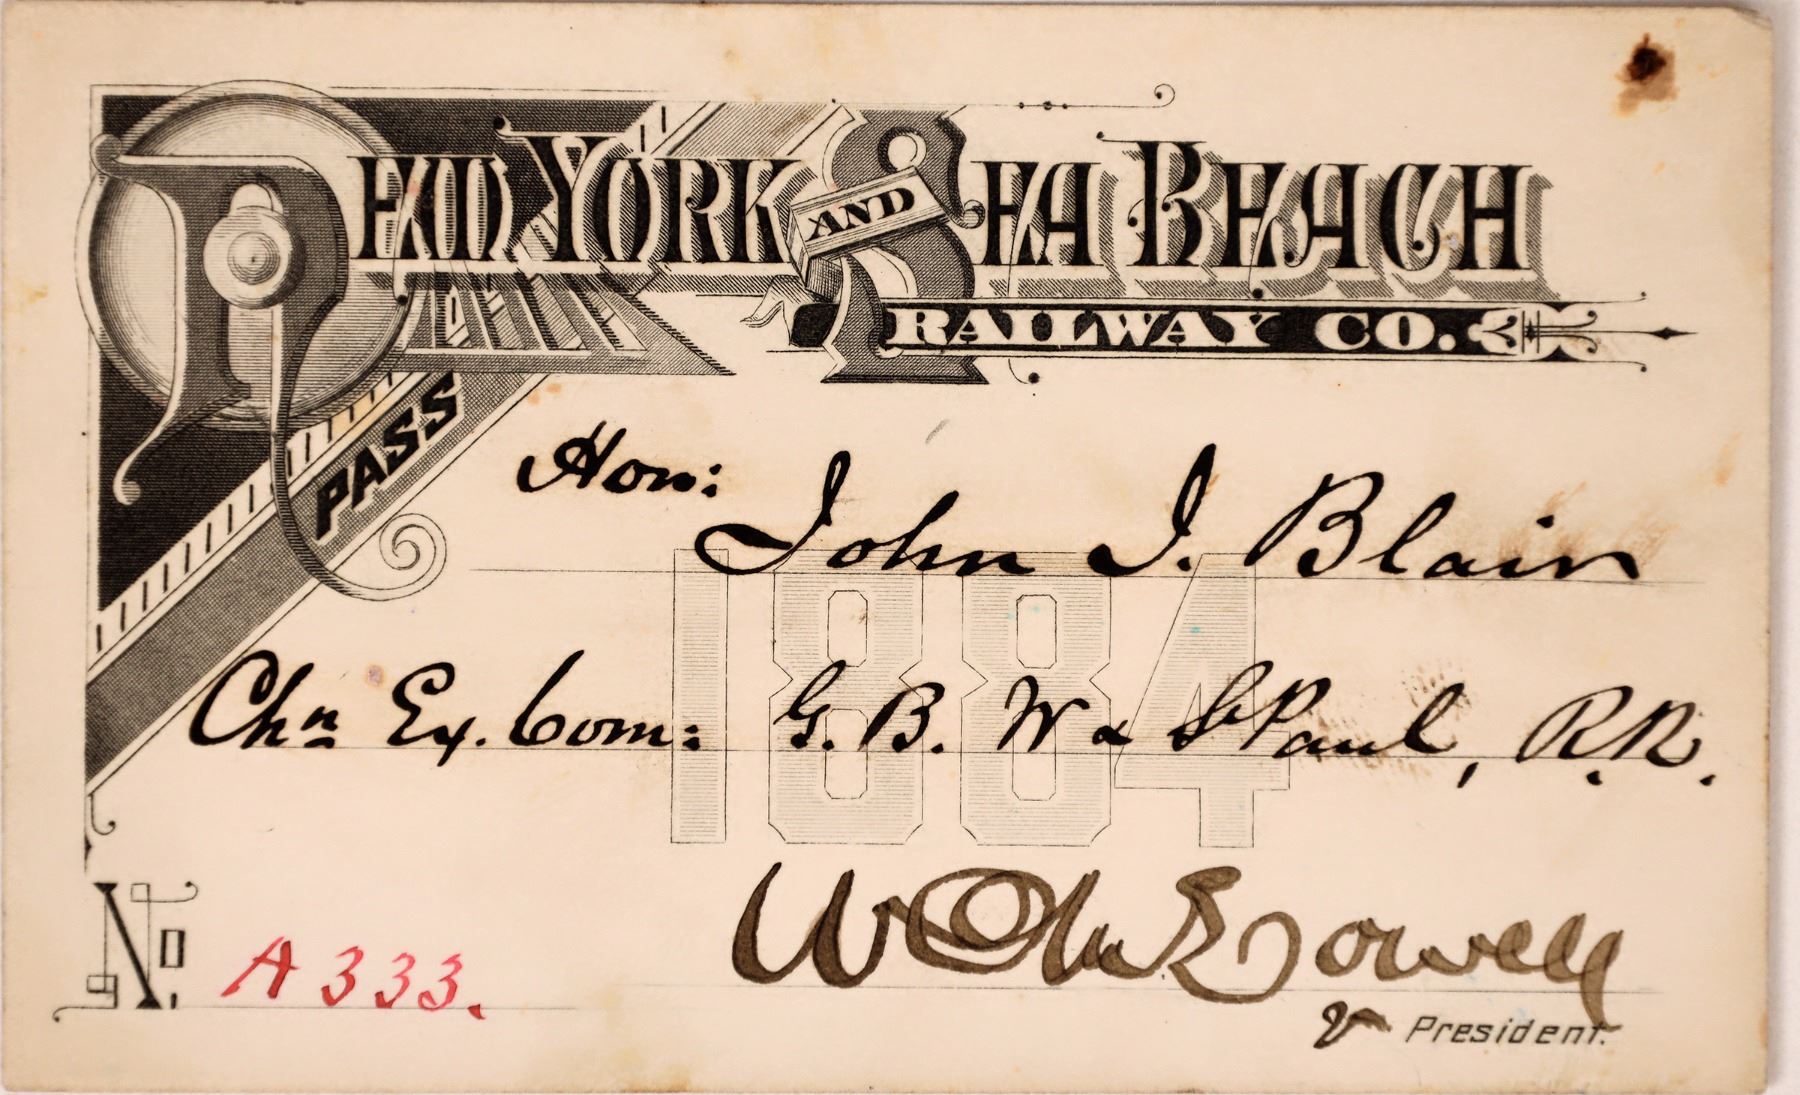 NEW YORK AND SEA BEACH
RAILWAY CO.
PASS
Hon: John I. Blair
1884
Chn Ex. Com: G. B. W & St Paul, R.R.
No. A 333.
V President.